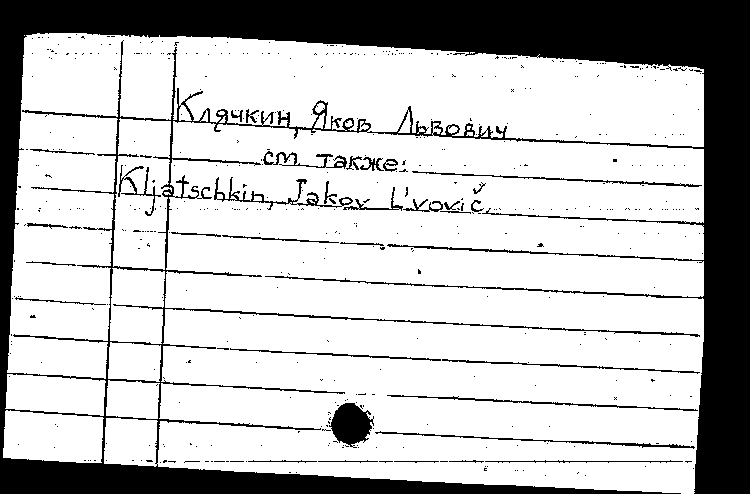 Клячкин, Яков Львович
см также:
Kljatschkin, Jakov L'vovič.